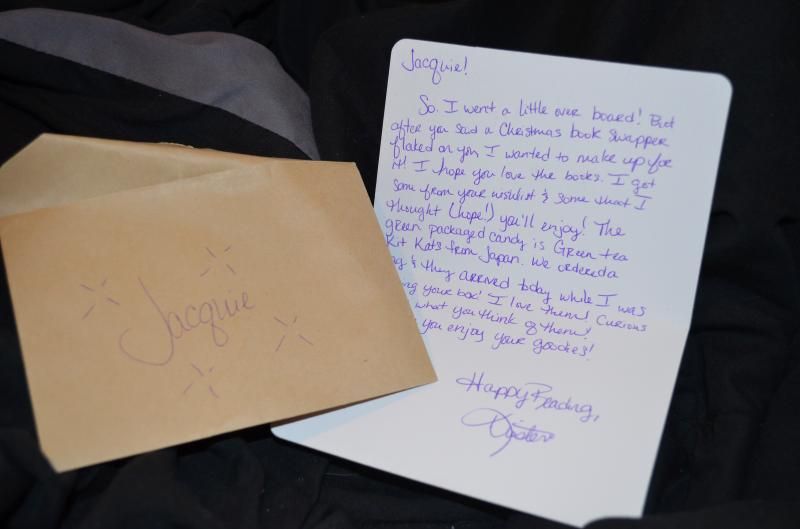 Jacquie
Jacquie!
So. I went a little over board! But
after you said a Christmas book swapper
flaked on you I wanted to make up for
it! I hope you love the books. I got
some from your wishlist & some that I
thought (hope!) you'll enjoy! The
green packaged candy is Green tea
Kit Kats from Japan. We ordered a
& they arrived today while I was
your box! I love them! Curious
what you think of them!
you enjoy your goodies!
Happy Reading,